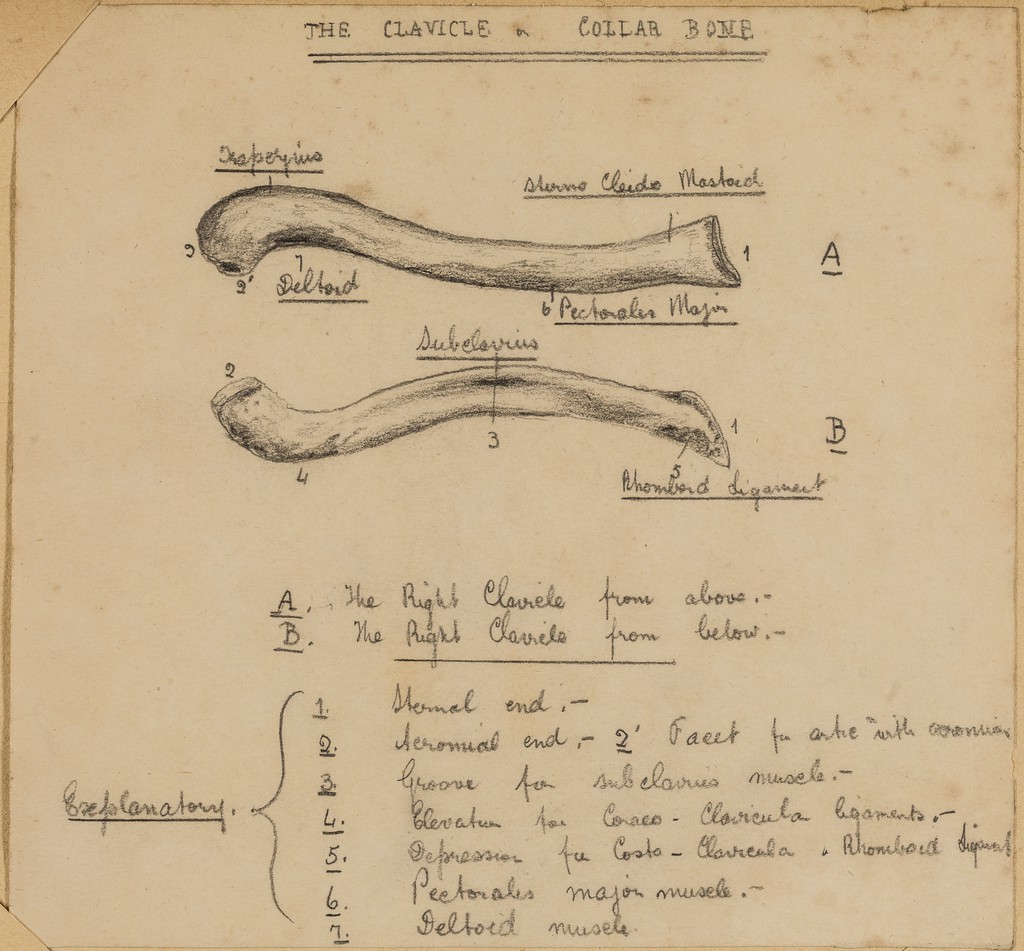 THE CLAVICLE or COLLAR BONE
Trapezius
Sterno Cleido Mastoid
2
1
A
7
2'
Deltoid
6 Pectorales Major
Subclavius
2
1
B
3
4
5
Rhomboid Ligament
A. The Right Clavicle from above.-
B. The Right Clavicle from below.-
Explanatory.
1. Sternal end.-
2. Acromial end.- 2' Facet for artic with acromion
3. Groove for subclavius muscle.-
4. Elevation for Coraco-Clavicula ligaments.-
5. Depression for Costo-Clavicula or Rhomboid ligament
6. Pectorales major muscle.-
7. Deltoid muscle.